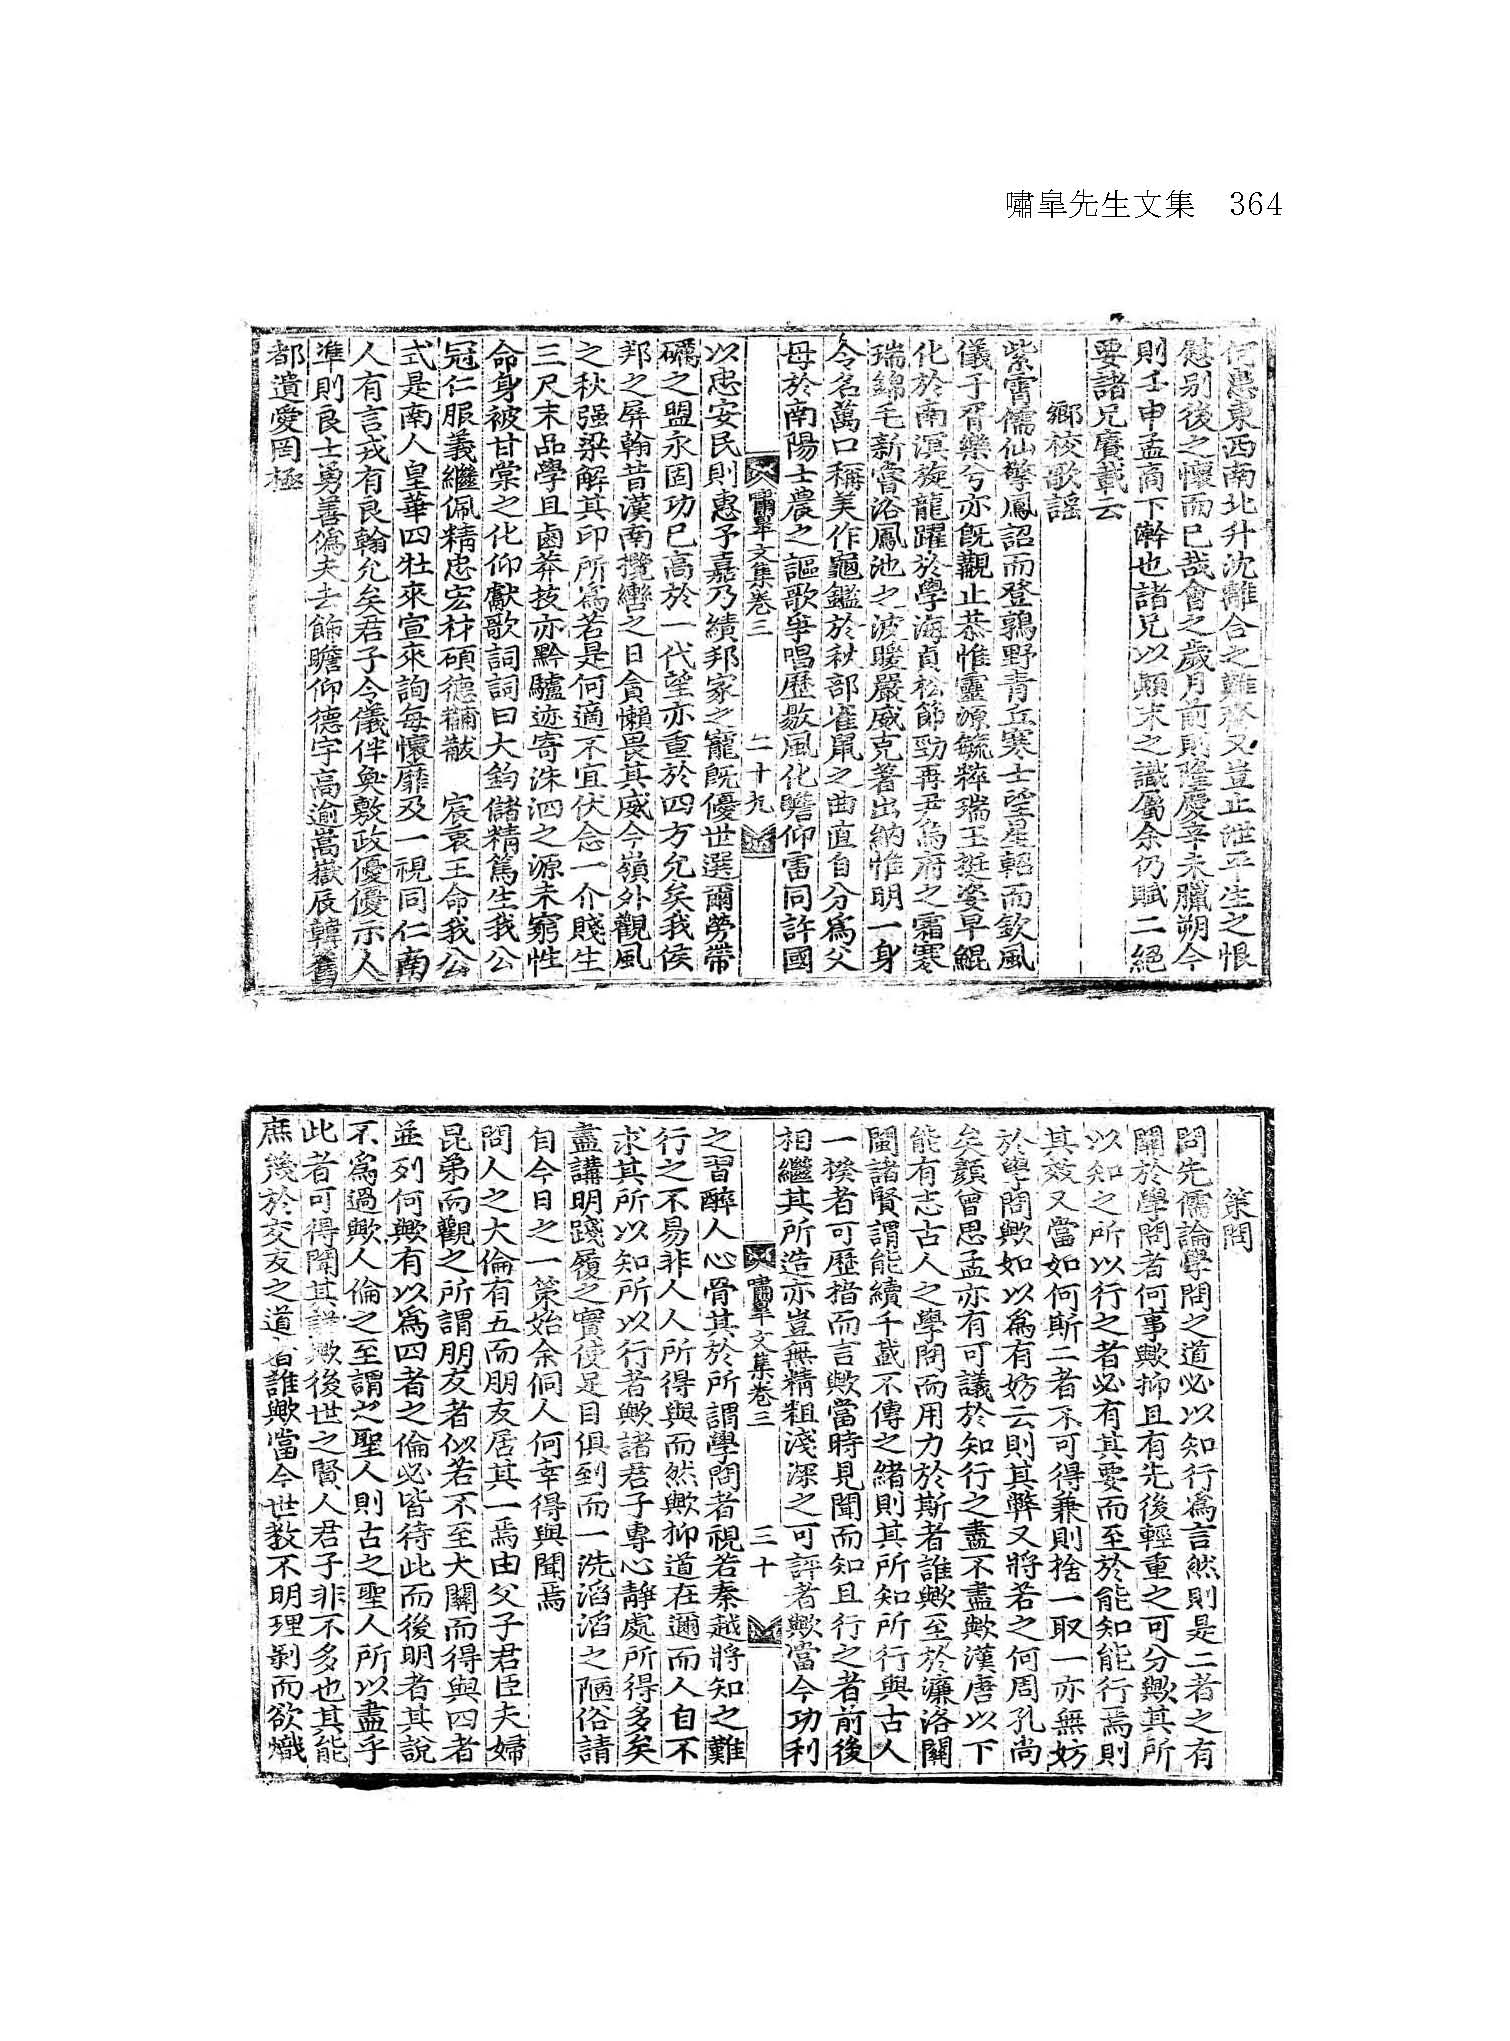 嘯皐先生文集 364
東西南北升沈離合之難齊又豈止潅平生之恨
慰别後之懷而已哉會之歲月前則隆慶辛未臘朔今
則壬申孟高下澣也諸兄以顛末之識屬余仍賦二絕
要諸兄賡載云
鄉校歌謠
紫霄儒仙擎鳳詔而登鶚野青丘寒士望星軺而欽風
儀子胥樂兮亦旣觀止恭惟靈源毓粹瑞玉挺姿早鯤
化於南溟旋龍躍於學海貞松節勁再丑烏府之霜寒
瑞錦毛新嘗浴鳳池之波暖嚴威克著出納惟明一身
令名萬口稱美作龜鑑於秋部雀鼠之曲直自分爲父
母於南陽士農之謳歌爭唱歷敭風化瞻仰雷同許國
嘯皐文集卷三 二十九
以忠安民則惠予嘉乃績邦家之寵旣優世選爾勞帶
礪之盟永固功已高於一代望亦重於四方允矣我侯
邦之屏翰昔漢南攬轡之日貪懶畏其威今嶺外觀風
之秋强梁解其印所爲若是何適不宜伏念一介賤生
三尺末品學且鹵莽技亦黔驢迹寄洙泗之源未窮性
命身被甘棠之化仰獻歌詞詞曰大鈞儲精篤生我公
冠仁服義繼佩精忠宏材碩德黼黻 宸衷王命我公
式是南人皇華四牡來宣來詢每懷靡及一視同仁南
人有言戎有良翰允矣君子令儀伴奐敷政優優示人
準則良士勇善僞夫去飾瞻仰德宇高逾嵩嶽辰韓舊
都遺愛罔極
策問
問先儒論學問之道必以知行爲言然則是二者之有
關於學問者何事歟抑且有先後輕重之可分歟其所
以知之所以行之者必有其要而至於能知能行焉則
其效又當如何斯二者不可得兼則捨一取一亦無妨
於學問歟如以爲有妨云則其弊又將若之何周孔尚
矣顔曾思孟亦有可議於知行之盡不盡歟漢唐以下
能有志古人之學問而用力於斯者誰歟至於濂洛關
閩諸賢謂能續千載不傳之緖則其所知所行與古人
一揆者可歷指而言歟當時見聞而知且行之者前後
相繼其所造亦豈無精粗淺深之可評者歟當今功利
嘯皐文集卷三 三十
之習醉人心骨其於所謂學問者視若秦越將知之難
行之不易非人人所得與而然歟抑道在邇而人自不
求其所以知所以行者歟諸君子專心靜處所得多矣
盡講明踐履之實使足目俱到而一洗滔滔之陋俗請
自今日之一策始余侗人何幸得與聞焉
問人之大倫有五而朋友居其一焉由父子君臣夫婦
昆弟而觀之所謂朋友者似若不至大關而得與四者
並列何歟有以爲四者之倫必皆待此而後明者其說
不爲過歟人倫之至謂之聖人則古之聖人所以盡乎
此者可得聞其詳歟後世之賢人君子非不多也其能
庶幾於交友之道者誰歟當今世敎不明理剝而欲熾